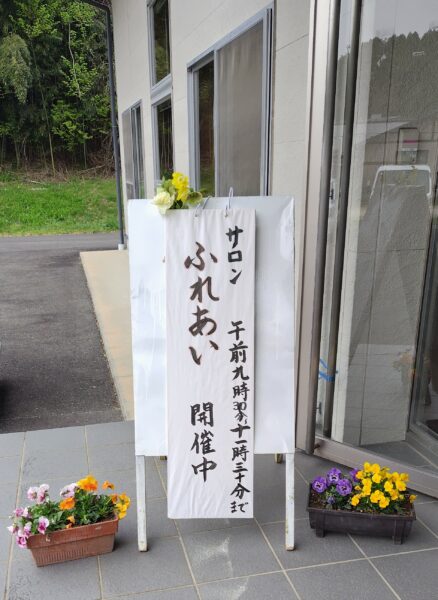 サロン 午前九時30分十一時三十分まで
ふれあい 開催中